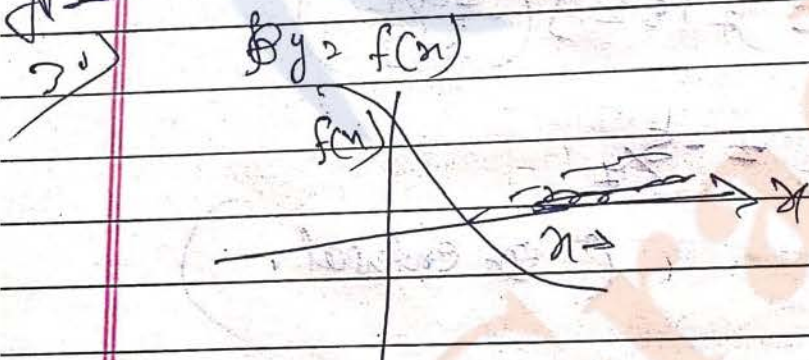 3"
By = f(x)
f(x)
x
x→